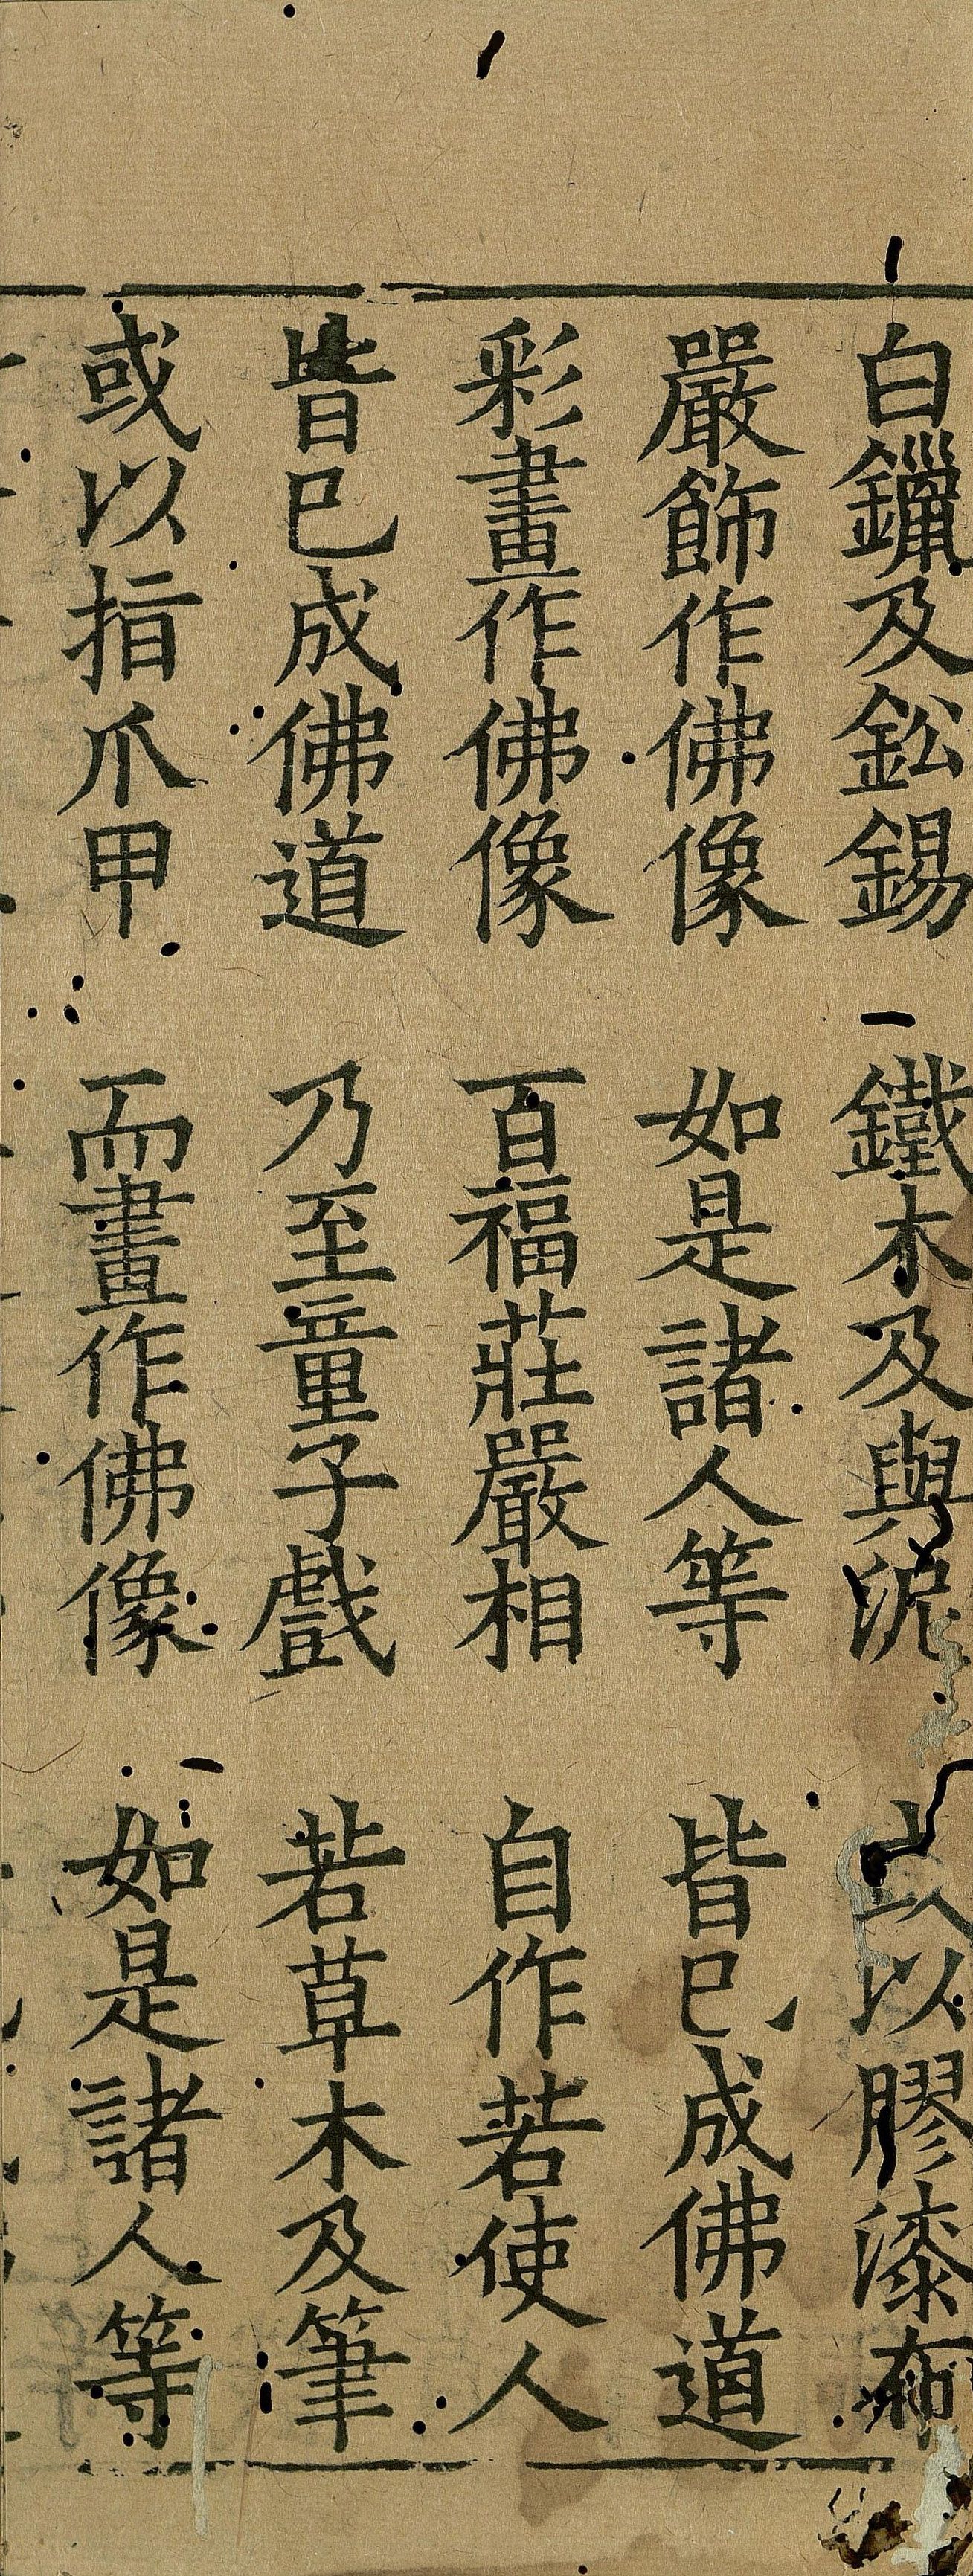 白鑞及鈆錫 鐵木及與泥 或以膠漆布
嚴飾作佛像 如是諸人等 皆已成佛道
彩畫作佛像 百福莊嚴相 自作若使人
皆已成佛道 乃至童子戲 若草木及筆
或以指爪甲 而畫作佛像 如是諸人等